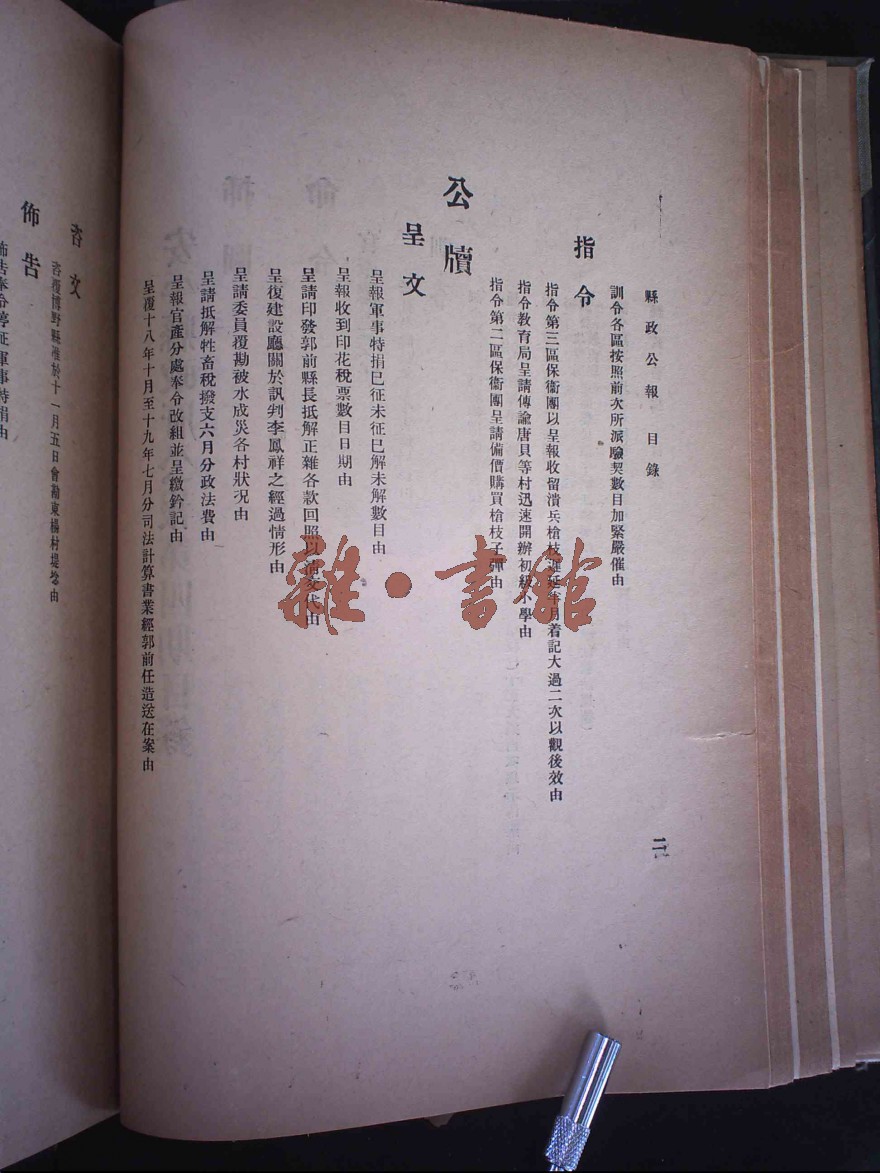 縣政公報 目錄
二
訓令各區按照前次所派驗契數目加緊嚴催由
指令
指令第三區保衞團以呈報收留潰兵槍枝遲延半月着記大過二次以觀後效由
指令教育局呈請傳諭唐貝等村迅速開辦初級小學由
指令第二區保衞團呈請備價購買槍枝子彈由
公牘
呈文
呈報軍事特捐已征未征已解未解數目由
呈報收到印花稅票數目日期由
呈請印發郭前縣長抵解正雜各款回照以清交代由
呈復建設廳關於訊判李鳳祥之經過情形由
呈請委員覆勘被水成災各村狀况由
呈請抵解牲畜稅撥支六月分政法費由
呈報官產分處奉令改組並呈繳鈐記由
呈覆十八年十月至十九年七月分司法計算書業經郭前任造送在案由
咨文
咨覆博野縣准於十一月五日會勘東楊村堤埝由
佈告
佈告奉令停征軍事特捐由
雜·書館